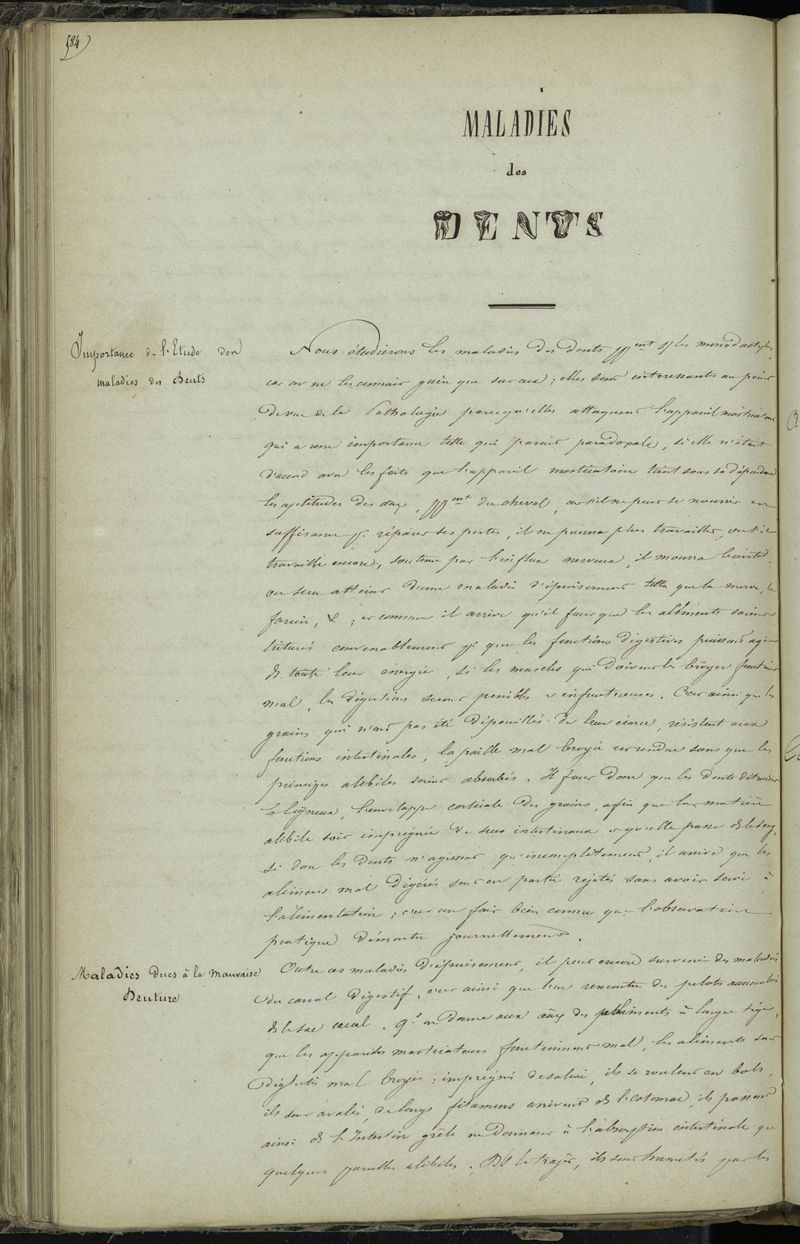 584)
MALADIES
des
DENTS
Importance de l'Etude des
maladies des Dents
Nous étudierons les maladies des dents ppment s/ les monodactyles,
car on ne les connait guère que sur eux ; elles sont intéressantes au point
de vue de la Pathologie parcequ'elles attaquent l'appareil masticatoire
qui a une importance telle qui parait paradoxale, si elle n'était
d'accord avec les faits que l'appareil masticatoire tient sous sa dépendance
les aptitudes des aux, ppment du cheval, car s'il ne peut se nourrir en
suffisance pr réparer ses pertes, il ne pourra plus travailler, ou s'il
travaille encore, soutenu par l'influx nerveux, il mourra bientôt
ou sera atteint d'une maladie d'épuisement telle que la morve, le
farcin, & ; et comme il arrive qu'il faut que les aliments soient
triturés convenablement pr que les fonctions digestives puissent agir
ds toute leur énergie, si les muscles qui doivent les broyer fonctionnent
mal, les digestions seront pénibles et infructueuses. Car ainsi que les
grains qui n'ont pas été dépouillés de leur écorce, résistent aux
fonctions intestinales, la paille mal broyée est rendue sans que les
principes alibiles soient absorbés. Il faut donc que les dents détruisent
le ligneux, l'enveloppe corticale des grains, afin que la matière
alibile soit imprégnée de sucs intestinaux et qu'elle passe ds le sang,
si donc les dents n'agissent qu'incomplètement, il arrive que les
aliments mal digérés sont en partie rejetés sans avoir servi à
l'alimentation ; c'est un fait bien connu que l'observation
pratique démontre journellement.
Maladies dues à la Mauvaise
Denture
Outre ces maladies d'épuisement, il peut encore survenir des maladies
du canal digestif, c'est ainsi que l'on rencontre des pelotes accumulées
ds le sac cœcal. Qd on donne aux aux des aliments à longue tige,
que les appareils masticateurs fonctionnent mal, les aliments sont
déglutis mal broyés : imprégnés de salive, ils se roulent en bols,
ils sont avalés, de longs filaments arrivent ds l'estomac, ils passent
ainsi ds l'Intestin grêle ne donnant à l'absorption intestinale que
quelques parcelles alibiles. Ds le trajet, ils sont humectés par les